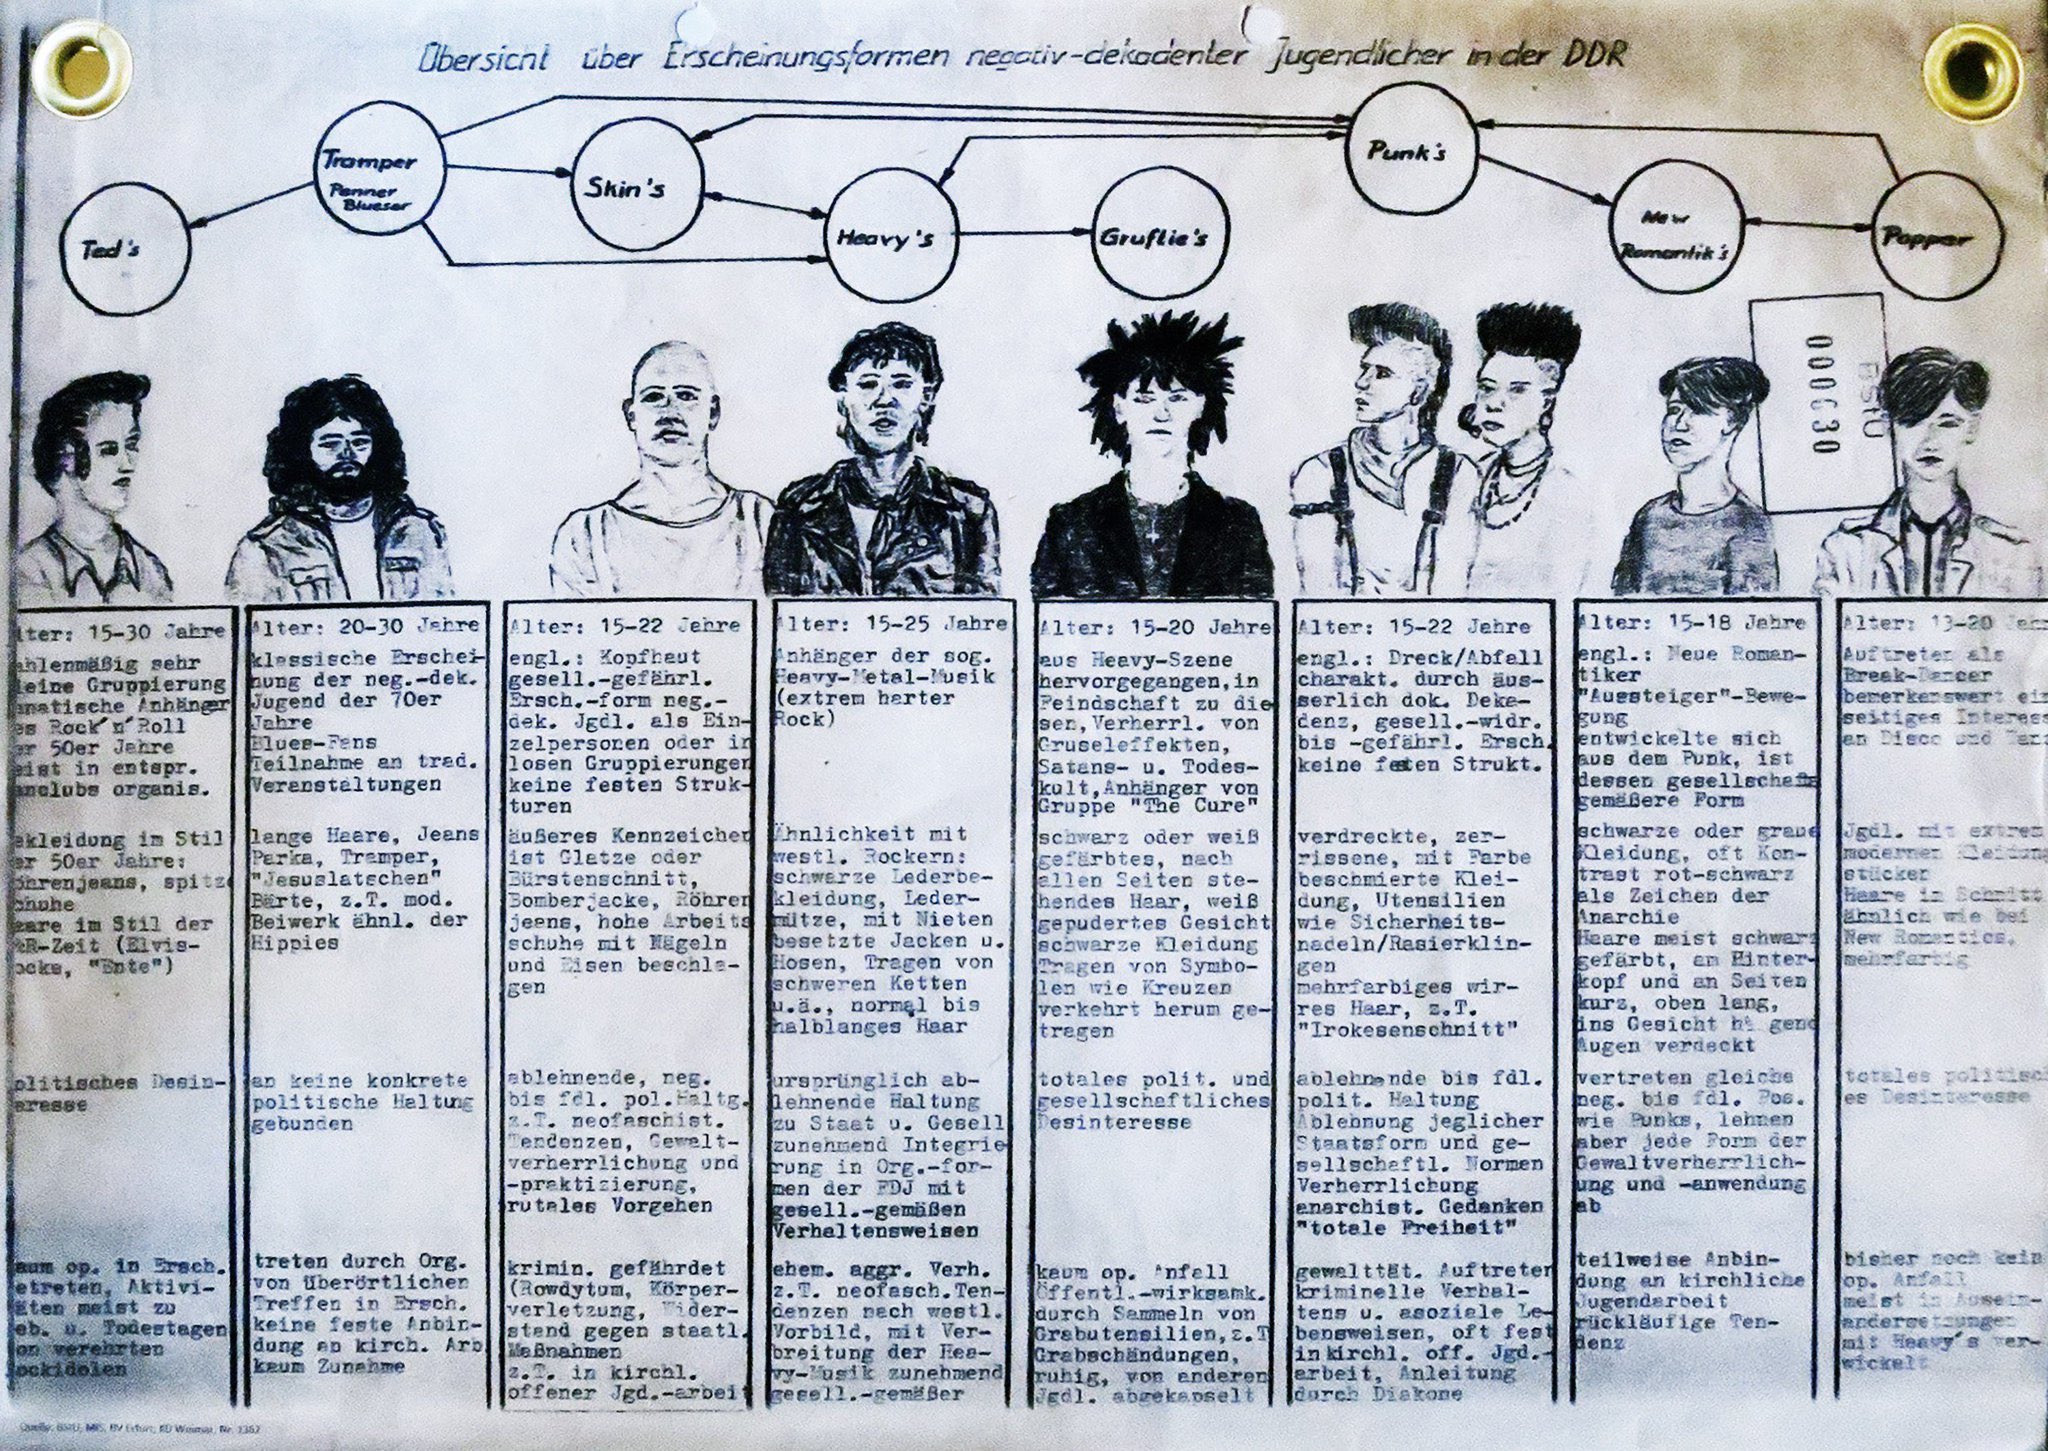 Übersicht über Erscheinungsformen negativ-dekadenter Jugendlicher in der DDR
Ted's
Tramper
Penner
Blueser
Skin's
Heavy's
Gruftie's
Punk's
New
Romantik's
Popper
BStU
000030
lter: 15-30 Jahre
ahlenmäßig sehr
leine Gruppierung
anatische Anhänger
es Rock'n'Roll
er 50er Jahre
eist in entspr.
anclubs organis.
ekleidung im Stil
er 50er Jahre:
öhrenjeans, spitze
chuhe
aare im Stil der
&R-Zeit (Elvis-
ocke, "Ente")
olitisches Desin-
eresse
aum op. in Ersch.
etreten, Aktivi-
äten meist zu
eb. u. Todestagen
on verehrten
ockidolen
Alter: 20-30 Jahre
klassische Erschei-
nung der neg.-dek.
Jugend der 70er
Jahre
Blues-Fans
Teilnahme an trad.
Veranstaltungen
lange Haare, Jeans
Parka, Tramper,
"Jesuslatschen"
Bärte, z.T. mod.
Beiwerk ähnl. der
Hippies
an keine konkrete
politische Haltung
gebunden
treten durch Org.
von überörtlichen
Treffen in Ersch.
keine feste Anbin-
dung an kirch. Arb
kaum Zunahme
Alter: 15-22 Jahre
engl.: Kopfhaut
gesell.-gefährl.
Ersch.-form neg.-
dek. Jgdl. als Ein-
zelpersonen oder in
losen Gruppierungen
keine festen Struk-
turen
äußeres Kennzeichen
ist Glatze oder
Bürstenschnitt,
Bomberjacke, Röhren
jeans, hohe Arbeits
schuhe mit Nägeln
und Eisen beschla-
gen
ablehnende, neg.
bis fdl. pol.Haltg.
z.T. neofaschist.
Tendenzen, Gewalt-
verherrlichung und
-praktizierung,
rutales Vorgehen
krimin. gefährdet
(Rowdytum, Körper-
verletzung, Wider-
stand gegen staatl.
Maßnahmen
z.T. in kirchl.
offener Jgd.-arbeit
Alter: 15-25 Jahre
Anhänger der sog.
Heavy-Metal-Musik
(extrem harter
Rock)
Ähnlichkeit mit
westl. Rockern:
schwarze Lederbe-
kleidung, Leder-
mütze, mit Nieten
besetzte Jacken u.
Hosen, Tragen von
schweren Ketten
u.ä., normal bis
halblanges Haar
ursprünglich ab-
lehnende Haltung
zu Staat u. Gesell
zunehmend Integrie
rung in Org.-for-
men der FDJ mit
gesell.-gemäßen
Verhaltensweisen
ehem. aggr. Verh.
z.T. neofasch.Ten-
denzen nach westl.
Vorbild, mit Ver-
breitung der Hea-
vy-Musik zunehmend
gesell.-gemäßer
Alter: 15-20 Jahre
aus Heavy-Szene
hervorgegangen,in
Feindschaft zu die
sen,Verherrl. von
Gruseleffekten,
Satans- u. Todes-
kult,Anhänger von
Gruppe "The Cure"
schwarz oder weiß
gefärbtes, nach
allen Seiten ste-
hendes Haar, weiß
gepudertes Gesicht
schwarze Kleidung
Tragen von Symbo-
len wie Kreuzen
verkehrt herum ge-
tragen
totales polit. und
gesellschaftliches
Desinteresse
kaum op. Anfall
Öffentl.-wirksamk.
durch Sammeln von
Grabutensilien,z.T
Grabschändungen,
ruhig, von anderen
Jgdl. abgekapselt
Alter: 15-22 Jahre
engl.: Dreck/Abfall
charakt. durch äus-
serlich dok. Deka-
denz, gesell.-widr.
bis -gefährl. Ersch.
keine festen Strukt.
verdreckte, zer-
rissene, mit Farbe
beschmierte Klei-
dung, Utensilien
wie Sicherheits-
nadeln/Rasierklin-
gen
mehrfarbiges wir-
res Haar, z.T.
"Irokesenschnitt"
ablehnende bis fdl.
polit. Haltung
Ablehnung jeglicher
Staatsform und ge-
sellschaftl. Normen
Verherrlichung
anarchist. Gedanken
"totale Freiheit"
gewalttät. Auftreten
kriminelle Verhal-
tens u. asoziale Le-
bensweisen, oft fest
in kirchl. off. Jgd.-
arbeit, Anleitung
durch Diakone
Alter: 15-18 Jahre
engl.: Neue Roman-
tiker
"Aussteiger"-Bewe-
gung
entwickelte sich
aus dem Punk, ist
dessen gesellschafts
gemäßere Form
schwarze oder graue
Kleidung, oft Kon-
trast rot-schwarz
als Zeichen der
Anarchie
Haare meist schwarz
gefärbt, am Hinter-
kopf und an Seiten
kurz, oben lang,
ins Gesicht hängend
Augen verdeckt
vertreten gleiche
neg. bis fdl. Pos.
wie Punks, lehnen
aber jede Form der
Gewaltverherrlich-
ung und -anwendung
ab
teilweise Anbin-
dung an kirchliche
Jugendarbeit
rückläufige Ten-
denz
Alter: 13-20 Jahr
Auftreten als
Break-Dancer
bemerkenswert ein
seitiges Interess
an Disco und Tanz
Jgdl. mit extrem
modernen Kleidung
stücken
Haare im Schnitt
ähnlich wie bei
New Romantics,
mehrfarbig
totales politisch
es Desinteresse
bisher noch kein
op. Anfall
meist in Ausein-
andersetzungen
mit Heavy's ver-
wickelt
Quelle: BStU, MfS, BV Erfurt, KD Weimar, Nr. 1362